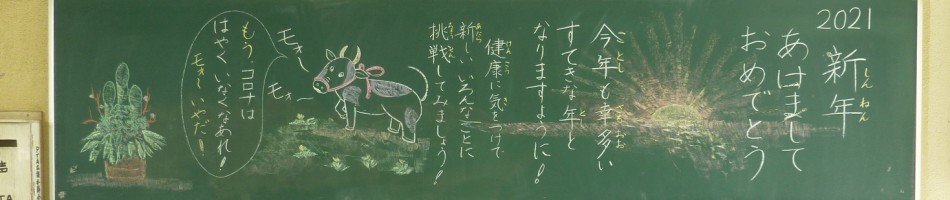 2021
新年
しんねん
あけまして
おめでとう
今年も幸多い
ことし さち おお
すてきな年と
とし
なりますように！
健康に気をつけて
けんこう き
新しいいろんなことに
あたら
挑戦してみましょう！
ちょうせん
モォ〜
モォ
もう、コロナは
はやくいなくなあれ！
モォ〜いやだ！